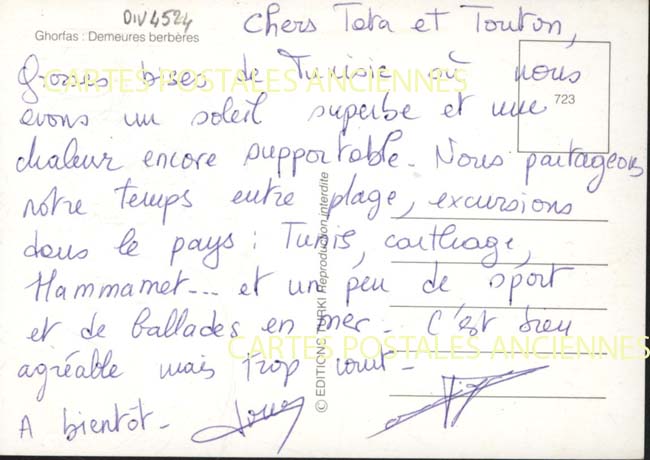 DIV4524
Ghorfas : Demeures berbères
Chers Tata et Tonton,
Grosses bises de Tunisie où nous
avons un soleil superbe et une
chaleur encore supportable. Nous partageons
notre temps entre plage, excursions
dans le pays : Tunis, carthage,
Hammamet... et un peu de sport
et de ballades en mer. C'est bien
agréable mais trop court.
A bientôt.
723
© EDITIONS TURKI Reproduction interdite
CARTES POSTALES ANCIENNES
CARTES POSTALES ANCIENNES